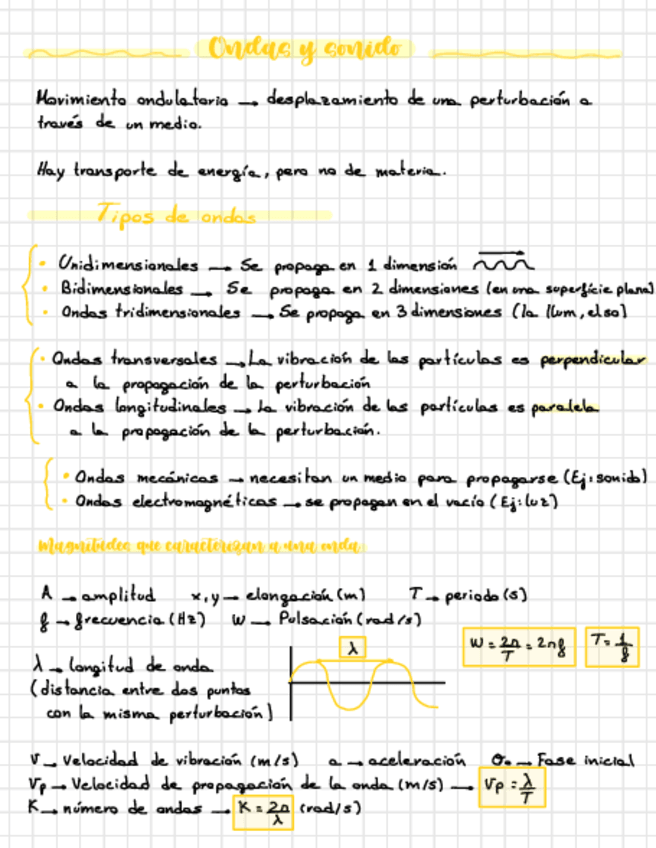 Ondas y sonido
Movimiento ondulatorio → desplazamiento de una perturbación a
través de un medio.
Hay transporte de energía, pero no de materia.
Tipos de ondas
• Unidimensionales → Se propaga en 1 dimensión
• Bidimensionales → Se propaga en 2 dimensiones (en una superfície plana)
• Ondas tridimensionales → Se propaga en 3 dimensiones (la llum, el so)
• Ondas transversales → La vibración de las partículas es perpendicular
a la propagación de la perturbación
• Ondas longitudinales → La vibración de las partículas es paralela
a la propagación de la perturbación.
• Ondas mecánicas → necesitan un medio para propagarse (Ej: sonido)
• Ondas electromagnéticas → se propagan en el vacío (Ej: luz)
Magnitudes que caracterizan a una onda
A → amplitud x, y → elongación (m) T → periodo (s)
f → frecuencia (Hz) W → Pulsación (rad/s)
W = 2π/T = 2πf T = 1/f
λ → longitud de onda
(distancia entre dos puntos
con la misma perturbación)
λ
V → Velocidad de vibración (m/s) a → aceleración θ₀ → Fase inicial
Vp → Velocidad de propagación de la onda (m/s) → Vp = λ/T
K → número de ondas → K = 2π/λ (rad/s)